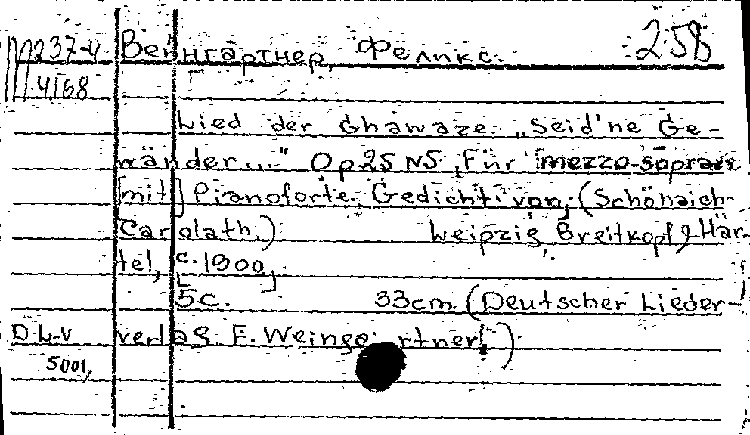 М237-4 Вейнгартнер, Феликс. 258
4168
Lied der Ghawaze. „Seid'ne Ge-
wänder..." Op 25 N5, Für mezzo-sopran
[mit] Pianoforte. Gedicht von (Schönaich-
Carolath.) Leipzig, Breitkopf & Här-
tel, [c. 1900,]
5c. 33cm. (Deutscher Lieder-
D.L.V verlag. F. Weingartner.)
5001,